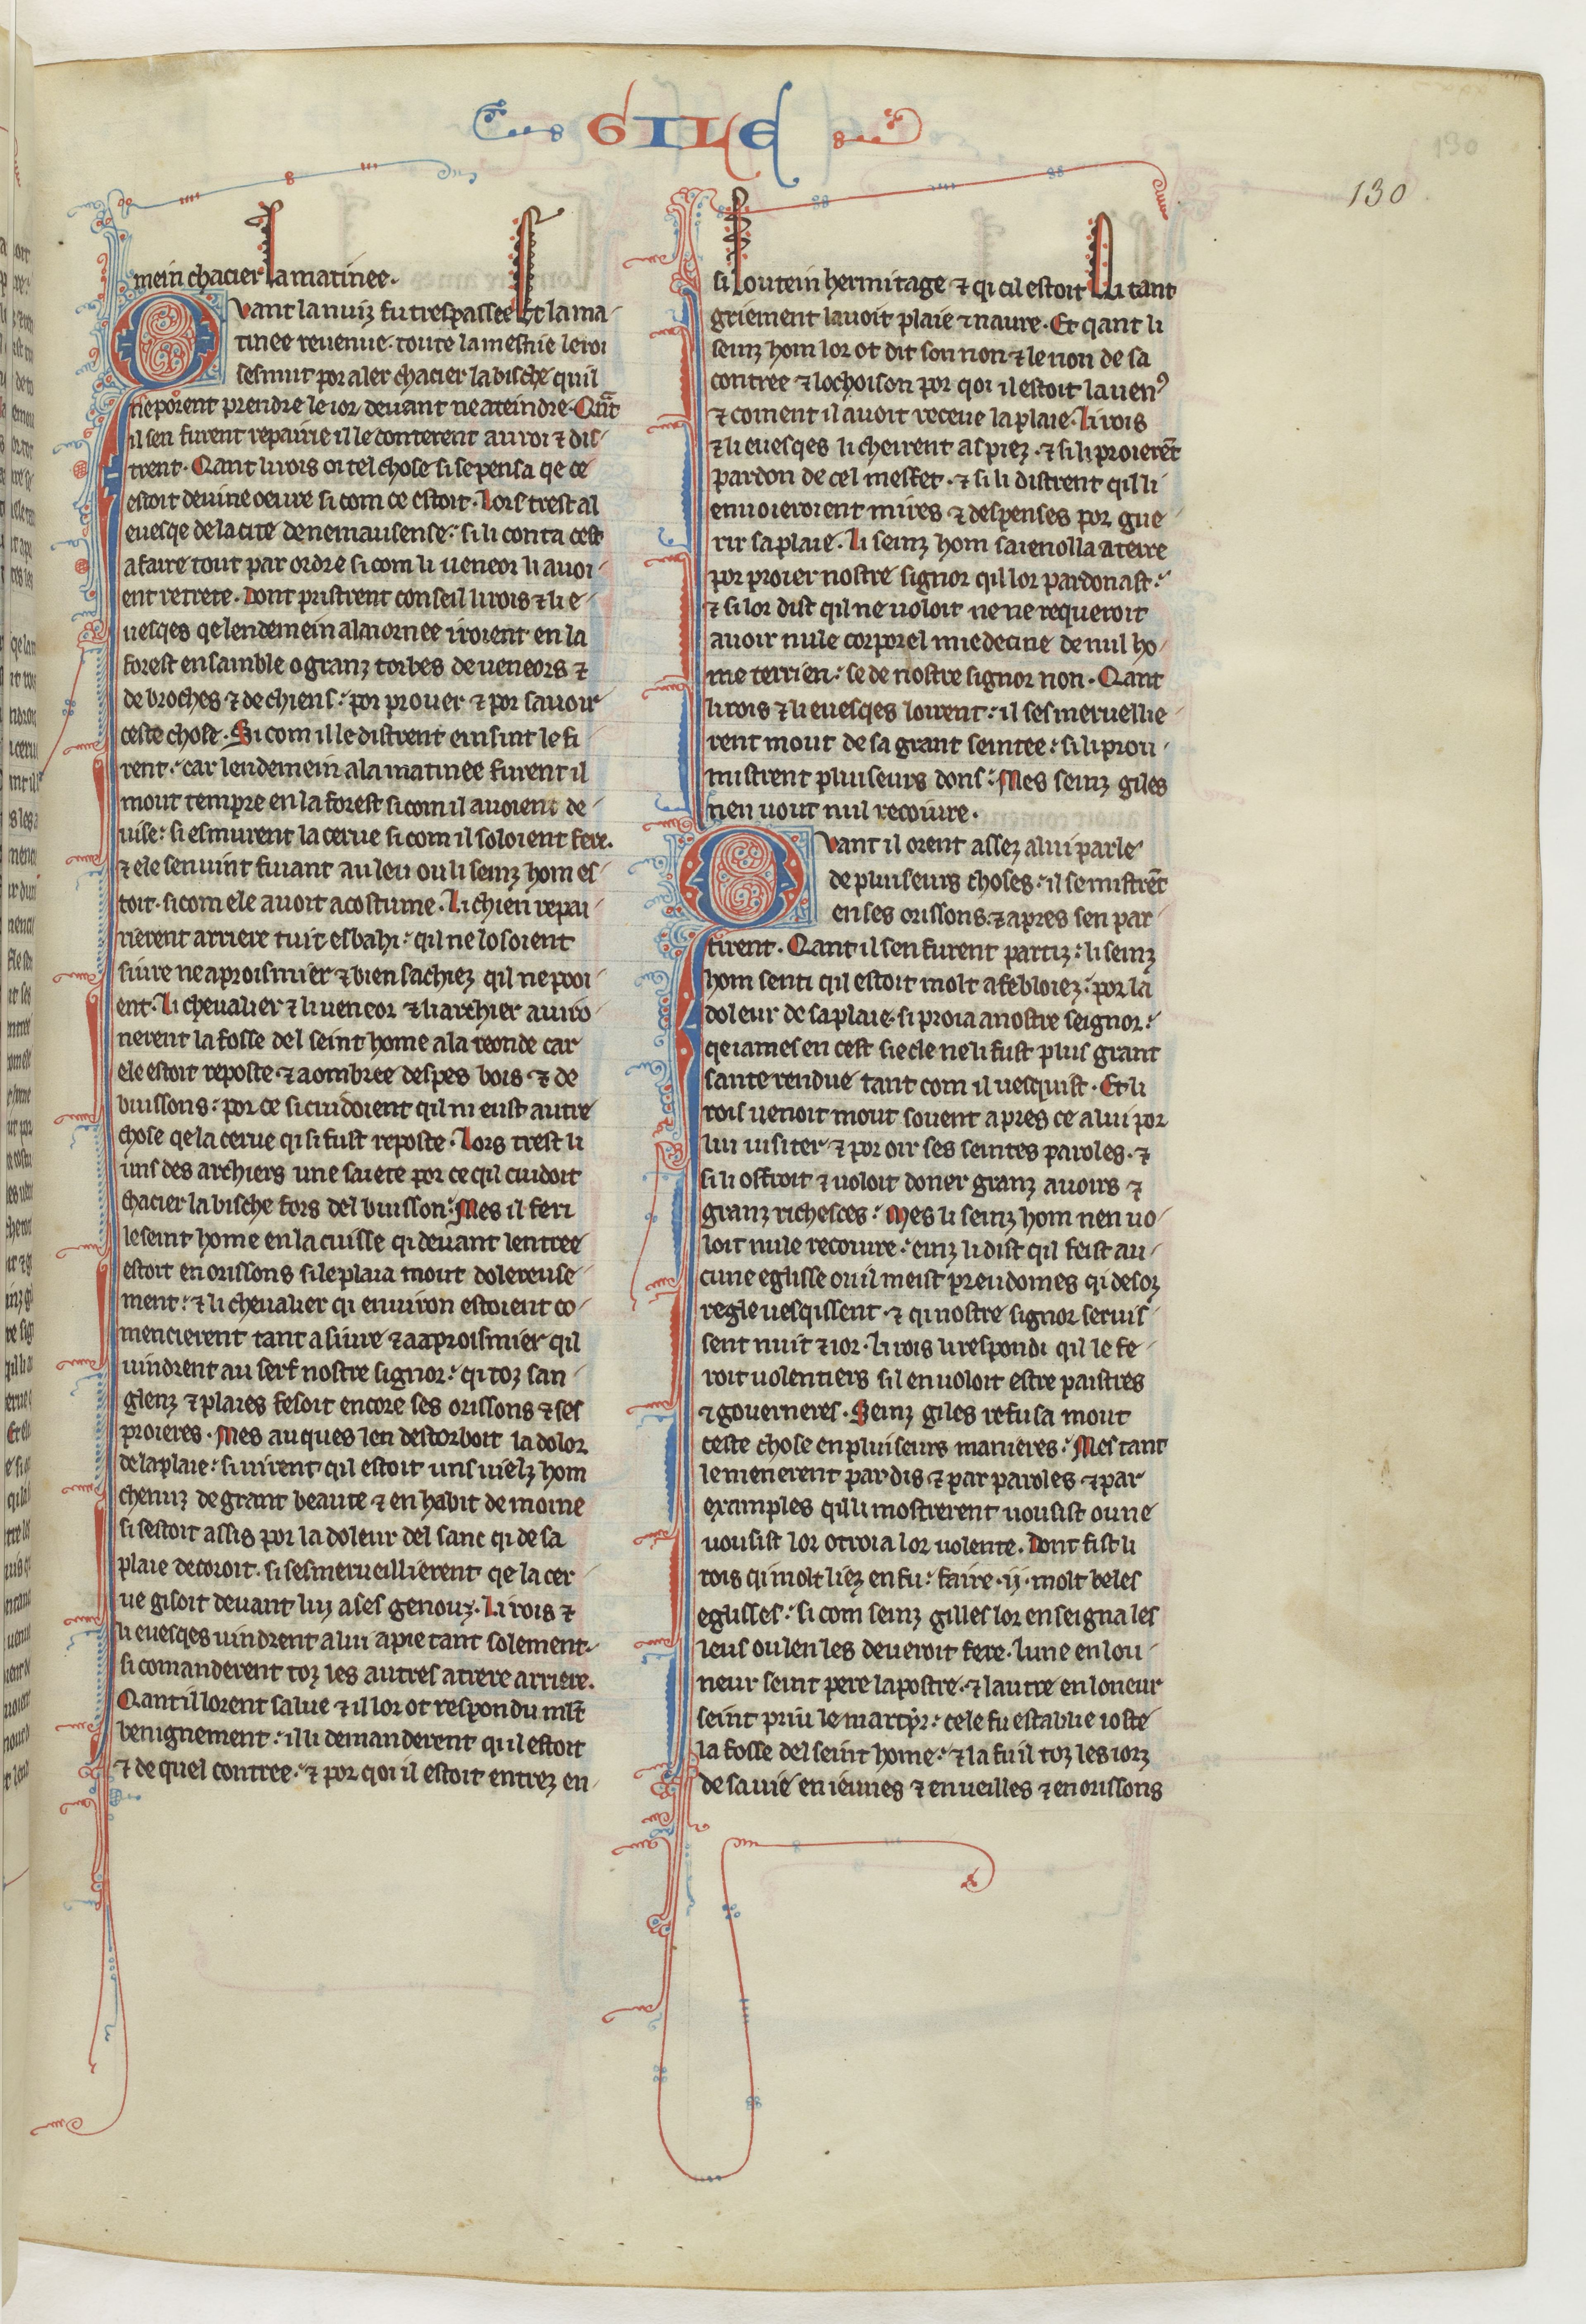 GILE
130
mein chacier la matinee.
Quant la nuiz fu trespassee et la ma-
tinee reuenue. toute la mesnie le roi
sesmut por aler chacier la bische quil
ne porent prendre le ior deuant ne ateindre. Qant
il sen furent repairie il le conterent au roi ⁊ dis-
trent. Qant li rois oi tel chose si se pensa qe ce
estoit deuine oeuure si com ce estoit. Lors trest al
euesqe de la cite de nemausense. si li conta cest
afaire tout par ordre si com li ueneor li auoi-
ent retrete. Dont pristrent conseil li rois ⁊ li e-
uesqes qe lendemein a la iornee iroient en la
forest ensamble o granz torbes de ueneors ⁊
de broches ⁊ de chiens. por prouer ⁊ por sauoir
ceste chose. Si com il le distrent einsint le fi-
rent. car lendemein a la matinee furent il
mout tempre en la forest si com il auoient de-
uise. si esmurent la cerue si com il soloient fere.
⁊ ele sen uint fuiant au leu ou li seinz hom es-
toit. si com ele auoit acostume. Li chien repai-
rierent arriere tuit esbahi. qil ne losoient
siure ne aproismier ⁊ bien sachiez qil ne pooi-
ent. Li cheualier ⁊ li ueneor ⁊ li archier auiro-
nerent la fosse del seint home a la reonde car
ele estoit reposte ⁊ aombree despes bois ⁊ de
buissons. por ce si cuidoient qil ni eust autre
chose qe la cerue qi si fust reposte. Lors trest li
uns des archiers une saiete por ce qil cuidoit
chacier la bische fors del buisson. Mes il feri
le seint home en la cuisse qi deuant lentree
estoit en orissons si le plaia mout dolereuse-
ment. ⁊ li cheualier qi enuiron estoient co-
mencierent tant a siure ⁊ a aproismier qil
uindrent au serf nostre signor. qi toz san-
glenz ⁊ plaies fesoit encore ses orissons ⁊ ses
proieres. Mes auques len destorboit la dolor
de la plaie. si uirent qil estoit uns uielz hom
chenuz de grant beaute ⁊ en habit de moine
si sestoit assis por la doleur del sanc qi de sa
plaie decoroit. si sesmerueillierent qe la cer-
ue gisoit deuant lui a ses genouz. Li rois ⁊
li euesqes uindrent a lui a pie tant solement.
si comanderent toz les autres a trere arriere.
Qant il lorent salue ⁊ il lor ot respondu mlt
benignement. il li demanderent qi il estoit
⁊ de quel contree. ⁊ por qoi il estoit entrez en
si loutein hermitage ⁊ qi cil estoit qi tant
griement lauoit plaie ⁊ naure. Et qant li
seinz hom lor ot dit son non ⁊ le non de sa
contree ⁊ lochoison por qoi il estoit la uenꝰ
⁊ coment il auoit receue la plaie. Li rois
⁊ li euesqes li cheirent as piez. ⁊ si li proierēt
pardon de cel mesfet. ⁊ si li distrent qil li
enuoieroient mires ⁊ despenses por gue-
rir sa plaie. Li seinz hom saienolla a terre
por proier nostre signor qil lor pardonast.
⁊ si lor dist qil ne uoloit ne ne requeroit
auoir nule corporel miedecine de nul ho-
me terrien. se de nostre signor non. Qant
li rois ⁊ li euesqes loirent. il sesmeruellie-
rent mout de sa grant seintee. si li prou-
mistrent pluiseurs dons. Mes seinz giles
nen uout nul recoiure.
Quant il orent assez a lui parle
de pluiseurs choses. il se mistrēt
en ses orissons. ⁊ apres sen par-
tirent. Qant il sen furent partiz. li seinz
hom senti qil estoit molt afebloiez. por la
doleur de sa plaie. si proia a nostre seignor.
qe iames en cest siecle ne li fust plus grant
sante rendue tant com il uesquist. Et li
rois uenoit mout souent apres ce a lui por
lui uisiter ⁊ por oir ses seintes paroles. ⁊
si li offroit ⁊ uoloit doner granz auoirs ⁊
granz richesces. Mes li seinz hom nen uo-
loit nule recoiure. einz li dist qil feist au-
cune eglisse ou il meist preudomes qi desoz
regle uesqissent ⁊ qi nostre signor seruis-
sent nuit ⁊ ior. Li rois li respondi qil le fe-
roit uolentiers sil en uoloit estre paistres
⁊ gouerneres. Seinz giles refusa mout
ceste chose en pluiseurs manieres. Mes tant
le menerent par dis ⁊ par paroles ⁊ par
examples qil li mostrerent uousist ou ne
uousist lor otroia lor uolente. Dont fist li
rois qi molt liez en fu. faire .ij. molt beles
eglisses. si com seinz gilles lor enseigna les
leus ou len les deueroit fere. lune en lou-
neur seint pere lapostre. ⁊ lautre en loneur
seint priu le martyr. cele fu establie ioste
la fosse del seint home. ⁊ la fu il toz les iorz
de sa uie en ieunes ⁊ en ueilles ⁊ en orissons